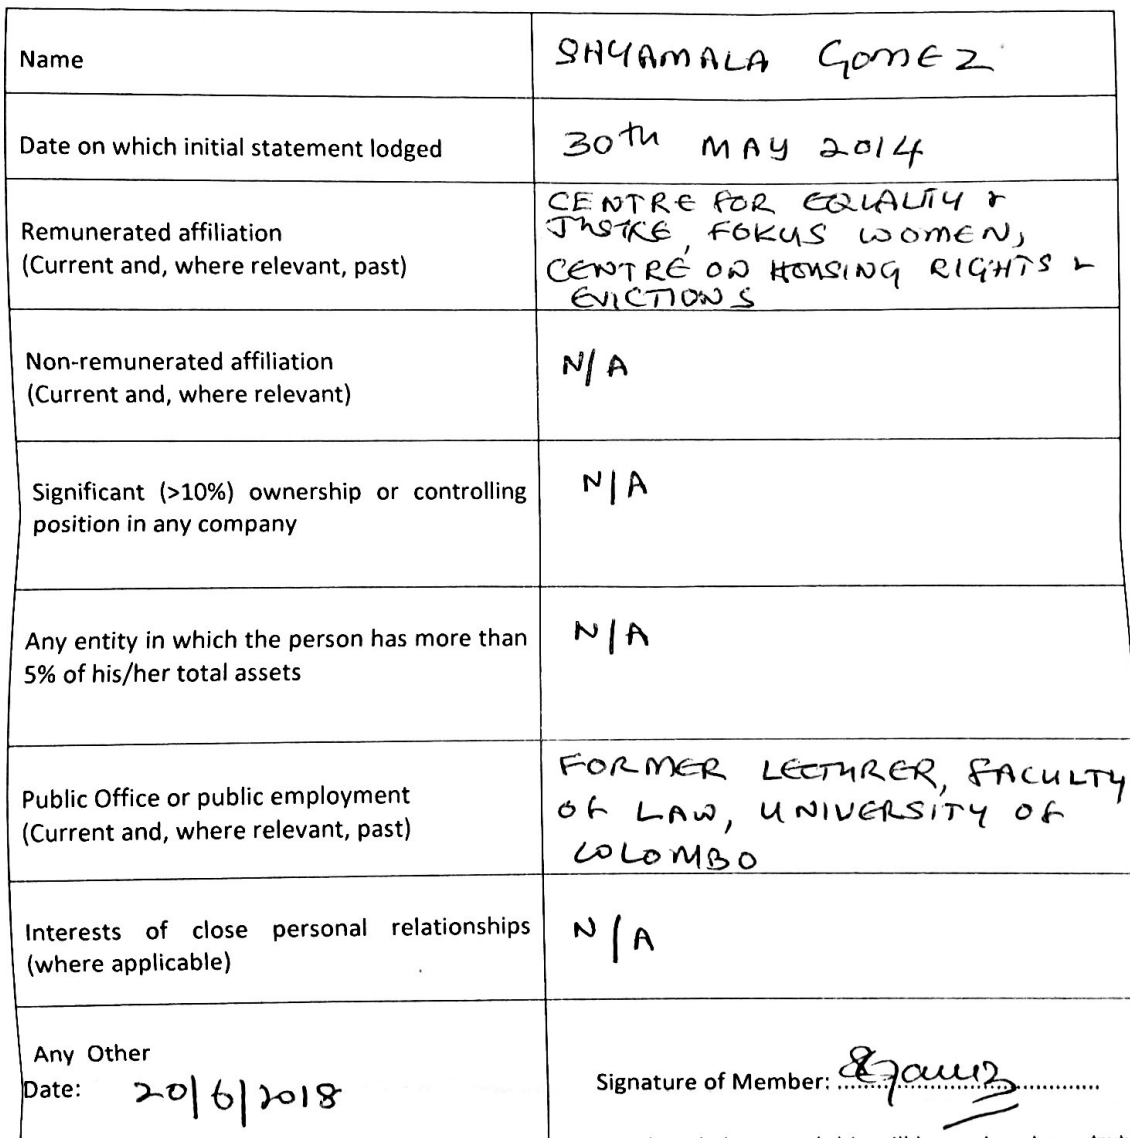 Name
SHYAMALA GOMEZ
Date on which initial statement lodged
30th MAY 2014
Remunerated affiliation
(Current and, where relevant, past)
CENTRE FOR EQUALITY &
JUSTICE, FOKUS WOMEN,
CENTRE ON HOUSING RIGHTS &
EVICTIONS
Non-remunerated affiliation
(Current and, where relevant)
N/A
Significant (>10%) ownership or controlling
position in any company
N/A
Any entity in which the person has more than
5% of his/her total assets
N/A
Public Office or public employment
(Current and, where relevant, past)
FORMER LECTURER, FACULTY
OF LAW, UNIVERSITY OF
COLOMBO
Interests of close personal relationships
(where applicable)
N/A
Any Other
Date: 20/6/2018
Signature of Member: SGomez